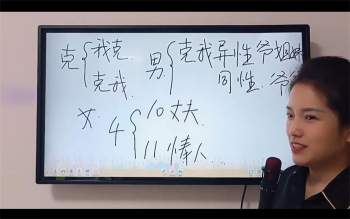 我克 克我异性爷姐
克 男
克我 同性 爷
10 丈夫
女 4
11 情人